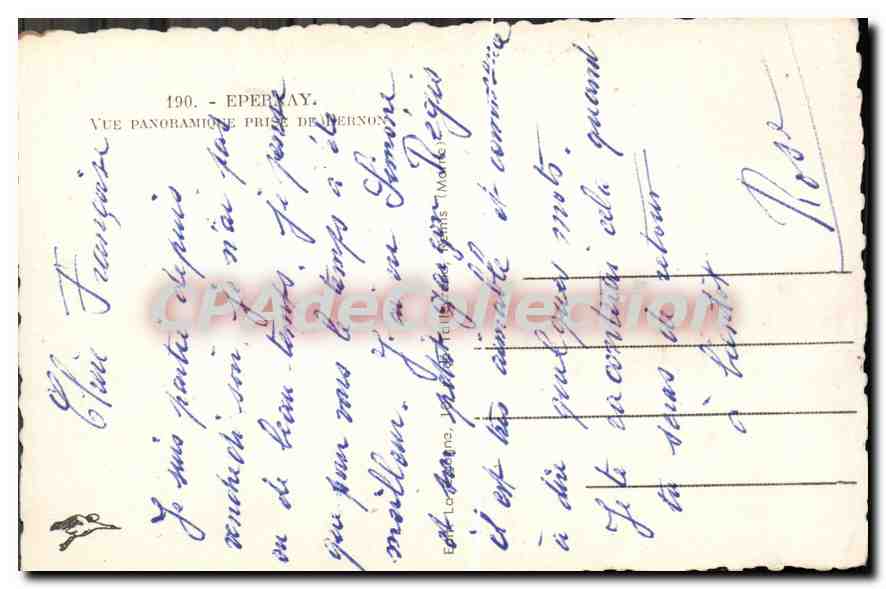 190. - EPERNAY.
VUE PANORAMIQUE PRISE DE BERNON
Chère Françoise
Je suis partie depuis
vendredi soir. Je n'ai pas
eu de beau temps. Je pense
que pour vous le temps a été
meilleur. J'ai vu Simone
et son petit garçon Régis
il est très aimable et commence
à dire quelques mots.
Je te raconterai cela quand
tu seras de retour
à bientôt
Rose
Edit. La Cigogne, Reims (Marne)
CPAdeCollection